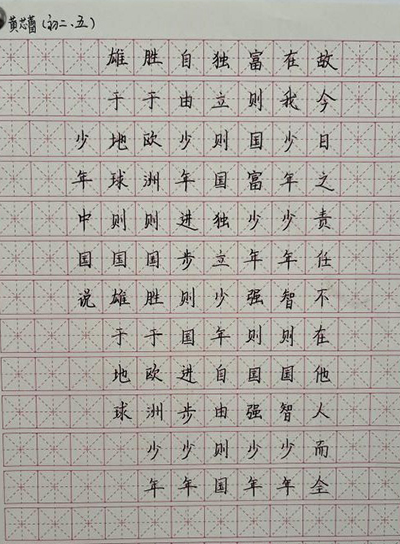 黄芯蕾(初二、五)
故今日之责任不在他人而全
在我少年少年智则国智少年
富则国富少年强则国强少年
独立则国独立少年自由则国
自由少年进步则国进步少年
胜于欧洲则国胜于欧洲少年
雄于地球则国雄于地球
少年中国说